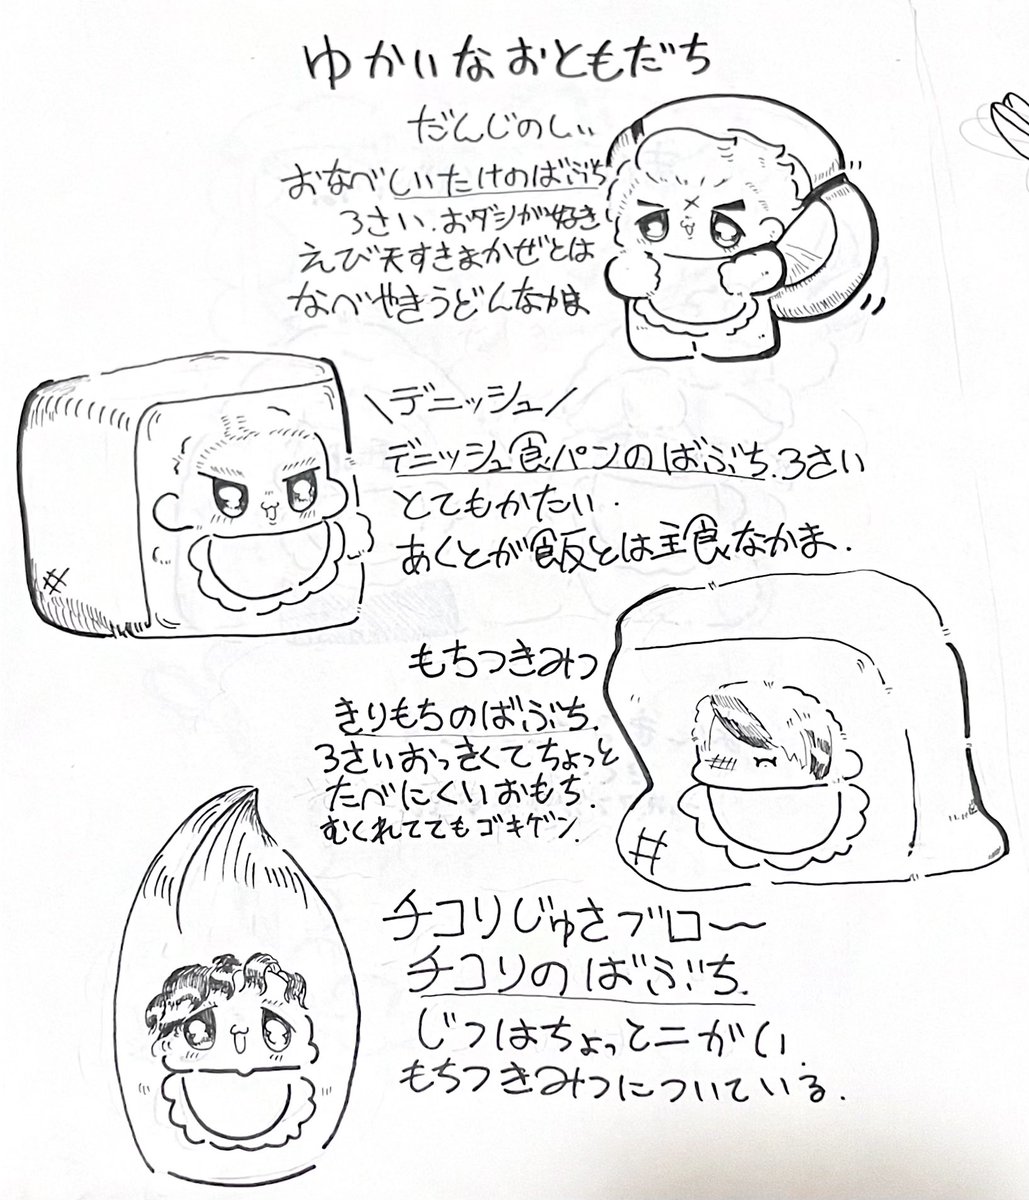 ゆかいなおともだち
だんじのしい
おなべしいたけのばぶち
3さい.おダシが好き
えび天すきまかぜとは
なべやきうどんなかま
\デニッシュ/
デニッシュ食パンのばぶち.3さい
とてもかたい.
あくとが飯とは主食なかま.
もちつきみつ
きりもちのばぶち.
3さいおっきくてちょっと
たべにくいおもち.
むくれててもゴキゲン.
チコリじゅさブロ〜
チコリのばぶち.
じつはちょっとニがい.
もちつきみつについている.